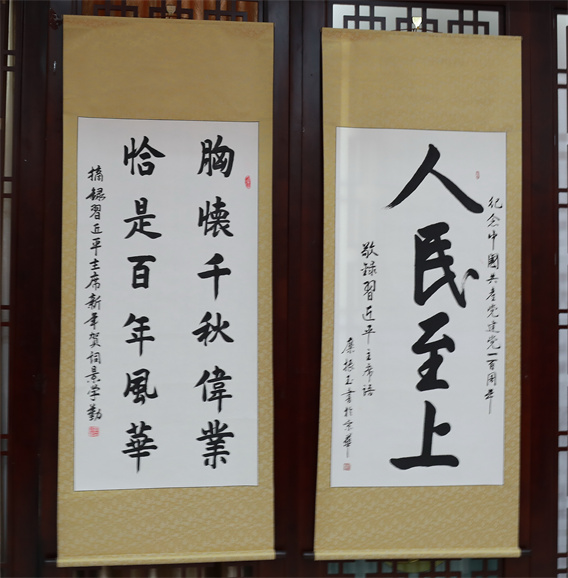 胸懷千秋偉業
恰是百年風華
摘録習近平主席新年贺詞景学勤
紀念中國共產党建党一百周年
人民至上
敬録習近平主席語
廉振玉書於京華